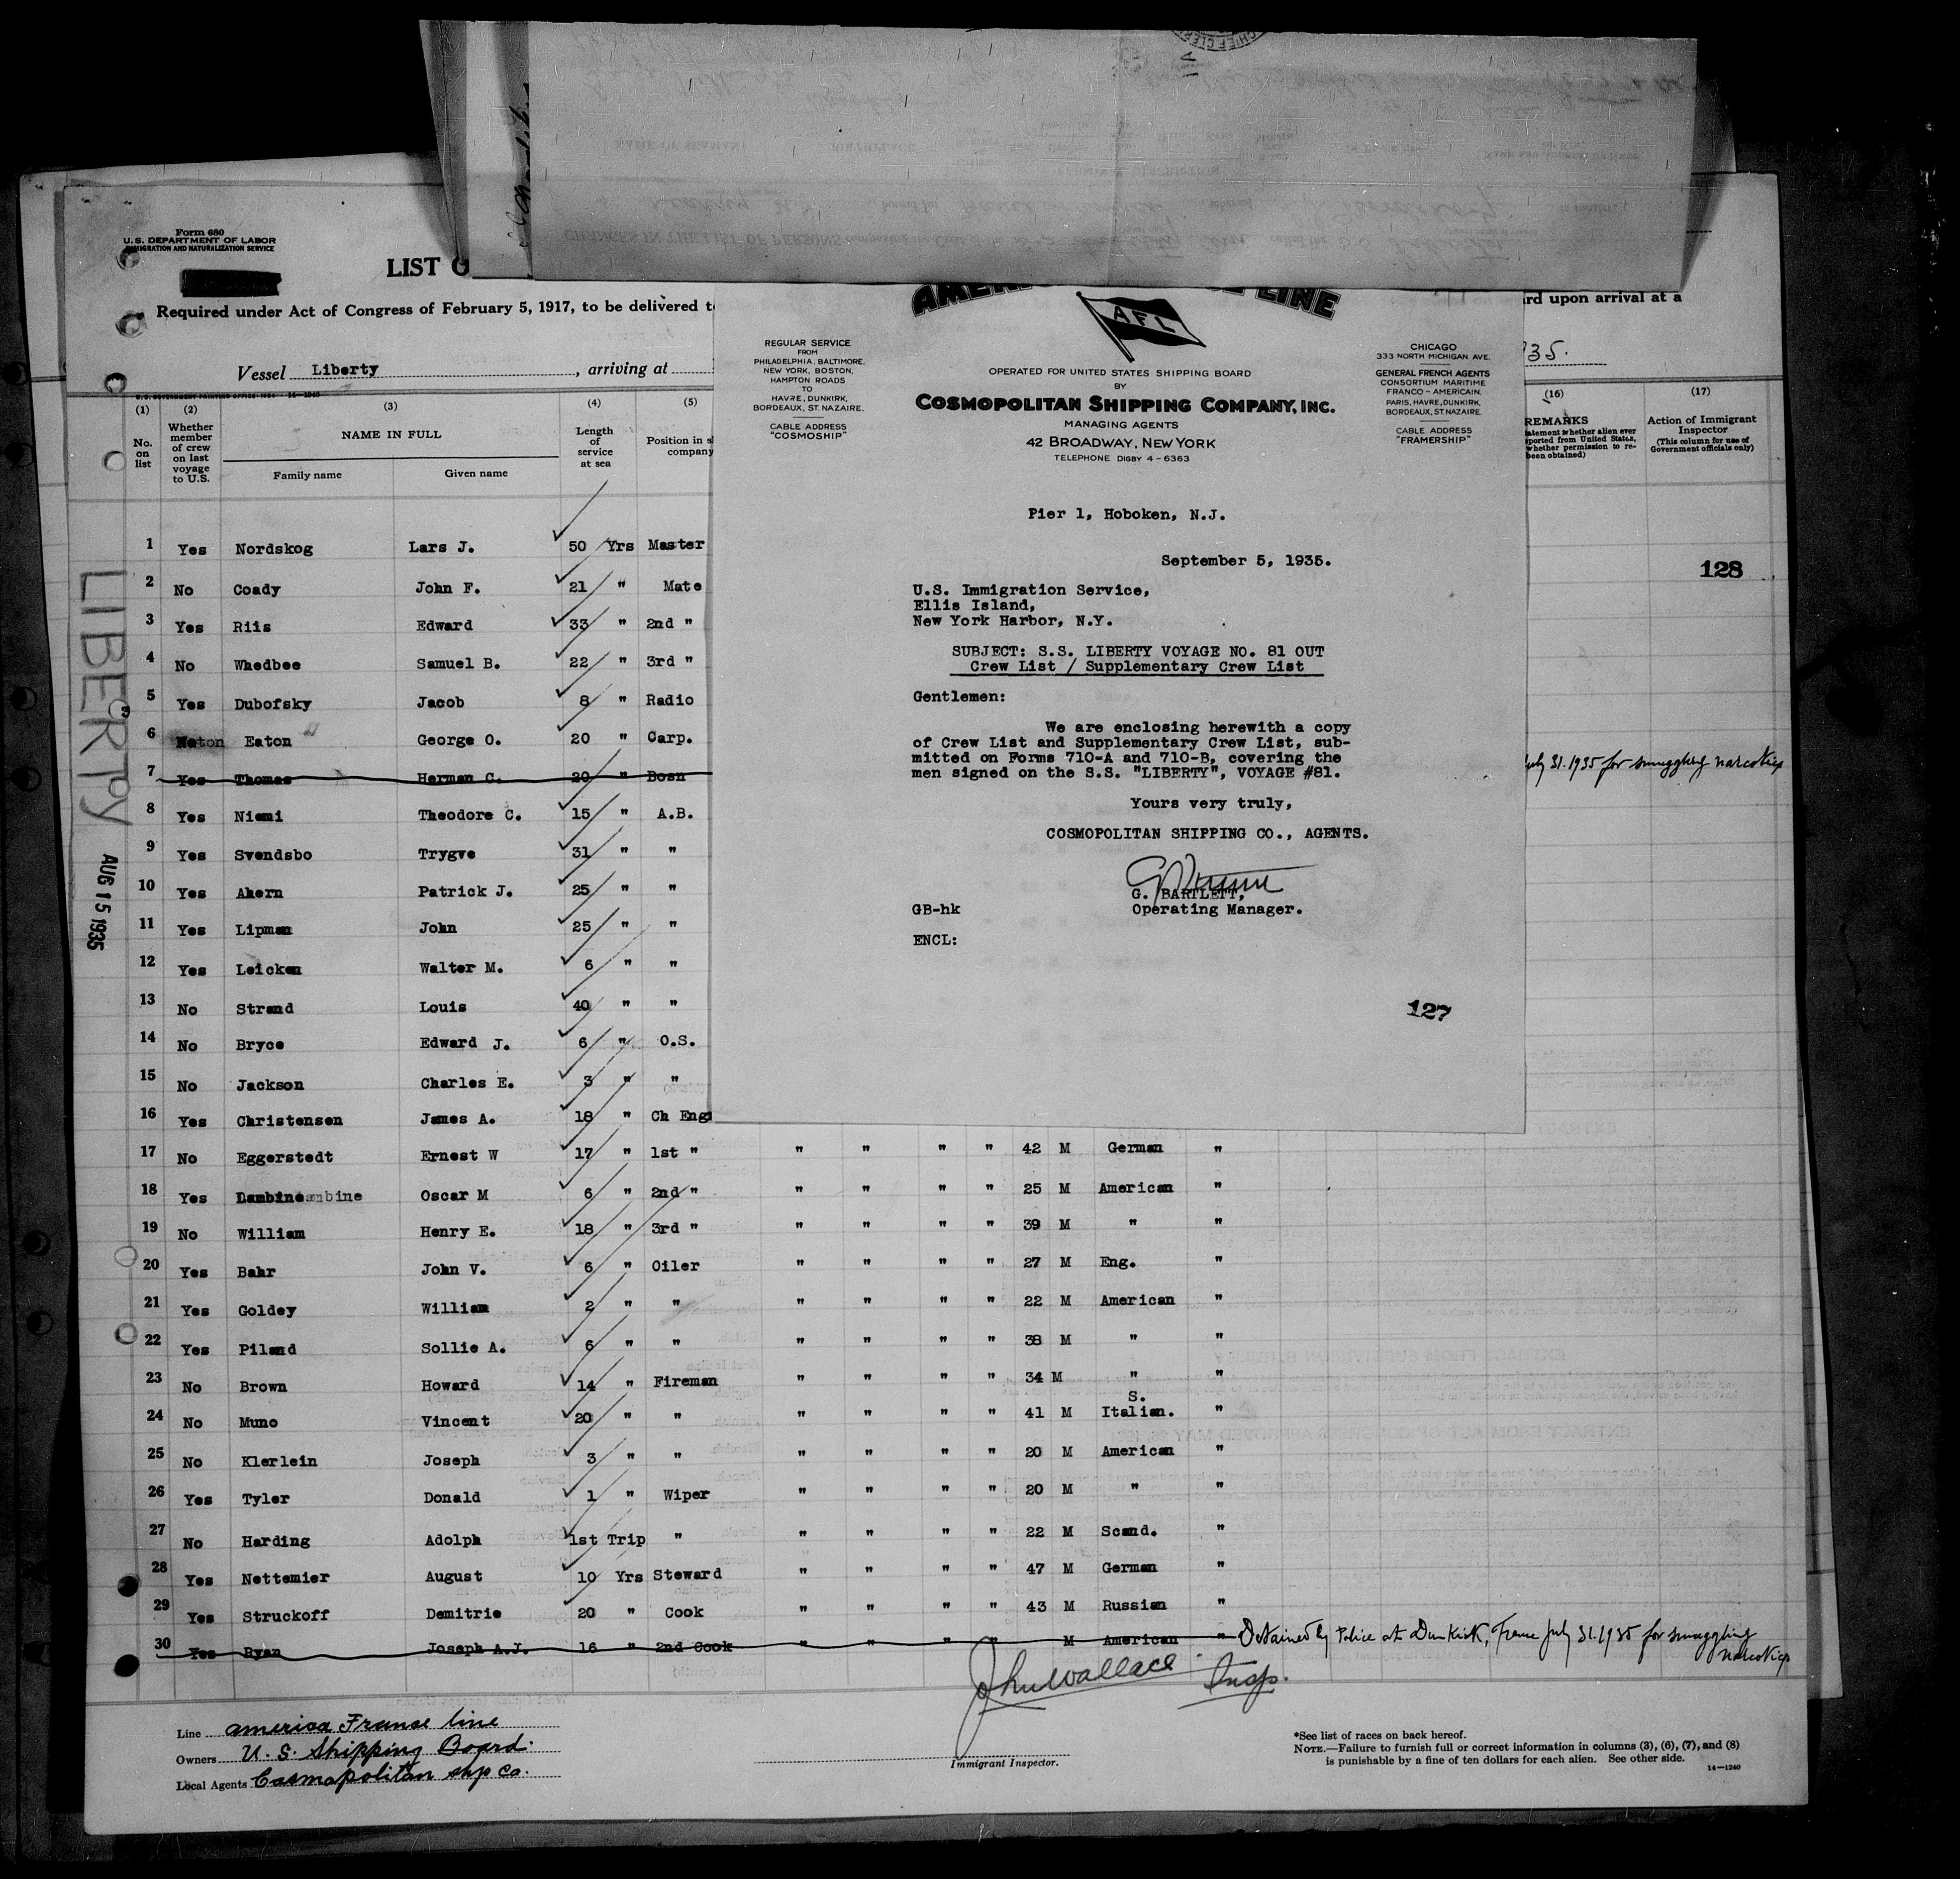 Form 680
U.S. DEPARTMENT OF LABOR
IMMIGRATION AND NATURALIZATION SERVICE
LIST O
Required under Act of Congress of February 5, 1917, to be delivered t
rd upon arrival at a
Vessel Liberty, arriving at
35.
(1) (2) (3) (4) (5) (16) (17)
No. on list
Whether member of crew on last voyage to U.S.
NAME IN FULL
Family name Given name
Length of service at sea
Position in s
company
REMARKS
Action of Immigrant Inspector
(This column for use of Government officials only)
128
1 Yes Nordskog Lars J. 50 Yrs Master
2 No Coady John F. 21 " Mate
3 Yes Riis Edward 33 " 2nd "
4 No Whedbee Samuel B. 22 " 3rd "
5 Yes Dubofsky Jacob 8 " Radio
6 Eaton George O. 20 " Carp.
7 Yes Thomas Herman C. 20 " Bosn
uly 31.1935 for smuggling narcotics
8 Yes Niemi Theodore C. 15 " A.B.
9 Yes Svendsbo Trygve 31 " "
10 Yes Ahern Patrick J. 25 " "
11 Yes Lipman John 25 " "
12 Yes Leicken Walter M. 6 " "
13 No Strand Louis 40 " "
14 No Bryce Edward J. 6 " O.S.
15 No Jackson Charles E. 3 " "
16 Yes Christensen James A. 18 " Ch Eng
17 No Eggerstedt Ernest W 17 " 1st " " " " " 42 M German "
18 Yes Dambine Oscar M 6 " 2nd " " " " " 25 M American "
19 No William Henry E. 18 " 3rd " " " " " 39 M " "
20 Yes Bahr John V. 6 " Oiler " " " " 27 M Eng. "
21 Yes Goldey William 2 " " " " " " 22 M American "
22 Yes Piland Sollie A. 6 " " " " " " 38 M " "
23 No Brown Howard 14 " Fireman " " " " 34 M " "
S.
24 No Muno Vincent 20 " " " " " " 41 M Italian. "
25 No Klerlein Joseph 3 " " " " " " 20 M American "
26 Yes Tyler Donald 1 " Wiper " " " " 20 M " "
27 No Harding Adolph 1st Trip " " " " " 22 M Scand. "
28 Yes Nettemier August 10 Yrs Steward " " " " 47 M German "
29 Yes Struckoff Demitrie 20 " Cook " " " " 43 M Russian "
30 Yes Ryan Joseph A.J. 16 " 2nd Cook " " " " M American " Detained by Police at Dunkirk, France July 31.1935 for smuggling
narcotics
John Wallace Insp.
Immigrant Inspector.
Line America France line
Owners U. S. Shipping Board.
Local Agents Cosmopolitan shp co.
*See list of races on back hereof.
NOTE.—Failure to furnish full or correct information in columns (3), (6), (7), and (8)
is punishable by a fine of ten dollars for each alien. See other side.
14—1240
LIBERTY
AUG 15 1935
LINE
AFL
REGULAR SERVICE
FROM
PHILADELPHIA, BALTIMORE,
NEW YORK, BOSTON,
HAMPTON ROADS
TO
HAVRE, DUNKIRK,
BORDEAUX, ST. NAZAIRE.
CABLE ADDRESS
"COSMOSHIP"
OPERATED FOR UNITED STATES SHIPPING BOARD
BY
COSMOPOLITAN SHIPPING COMPANY, INC.
MANAGING AGENTS
42 BROADWAY, NEW YORK
TELEPHONE DIGBY 4-6363
CHICAGO
333 NORTH MICHIGAN AVE.
GENERAL FRENCH AGENTS
CONSORTIUM MARITIME
FRANCO-AMERICAIN,
PARIS, HAVRE, DUNKIRK,
BORDEAUX, ST. NAZAIRE.
CABLE ADDRESS
"FRAMERSHIP"
Pier 1, Hoboken, N.J.
September 5, 1935.
U.S. Immigration Service,
Ellis Island,
New York Harbor, N.Y.
SUBJECT: S.S. LIBERTY VOYAGE NO. 81 OUT
Crew List / Supplementary Crew List
Gentlemen:
We are enclosing herewith a copy
of Crew List and Supplementary Crew List, sub-
mitted on Forms 710-A and 710-B, covering the
men signed on the S.S. "LIBERTY", VOYAGE #81.
Yours very truly,
COSMOPOLITAN SHIPPING CO., AGENTS.
G. BARTLETT,
GB-hk Operating Manager.
ENCL:
127